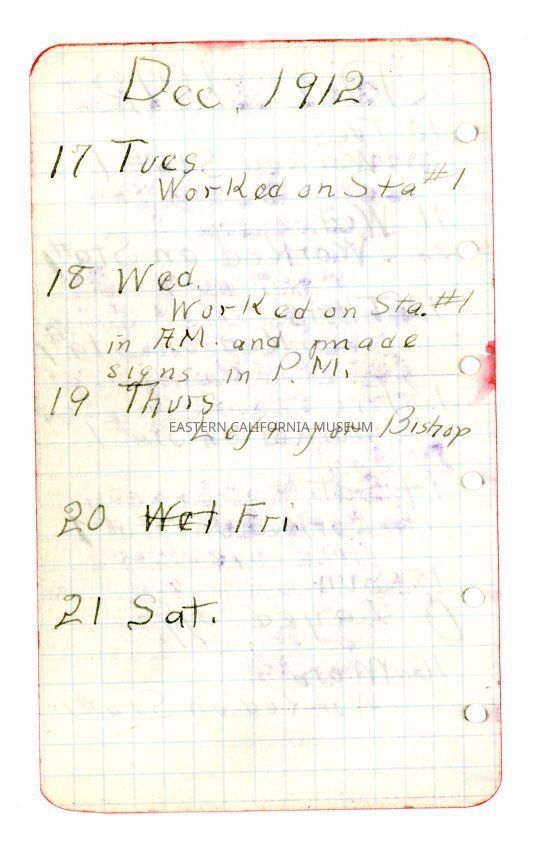 Dec. 1912
17 Tues.
Worked on Sta #1
18 Wed.
Worked on Sta. #1
in A.M. and made
signs in P.M.
19 Thurs
EASTERN CALIFORNIA MUSEUM
Left for Bishop
20 Wet Fri.
21 Sat.